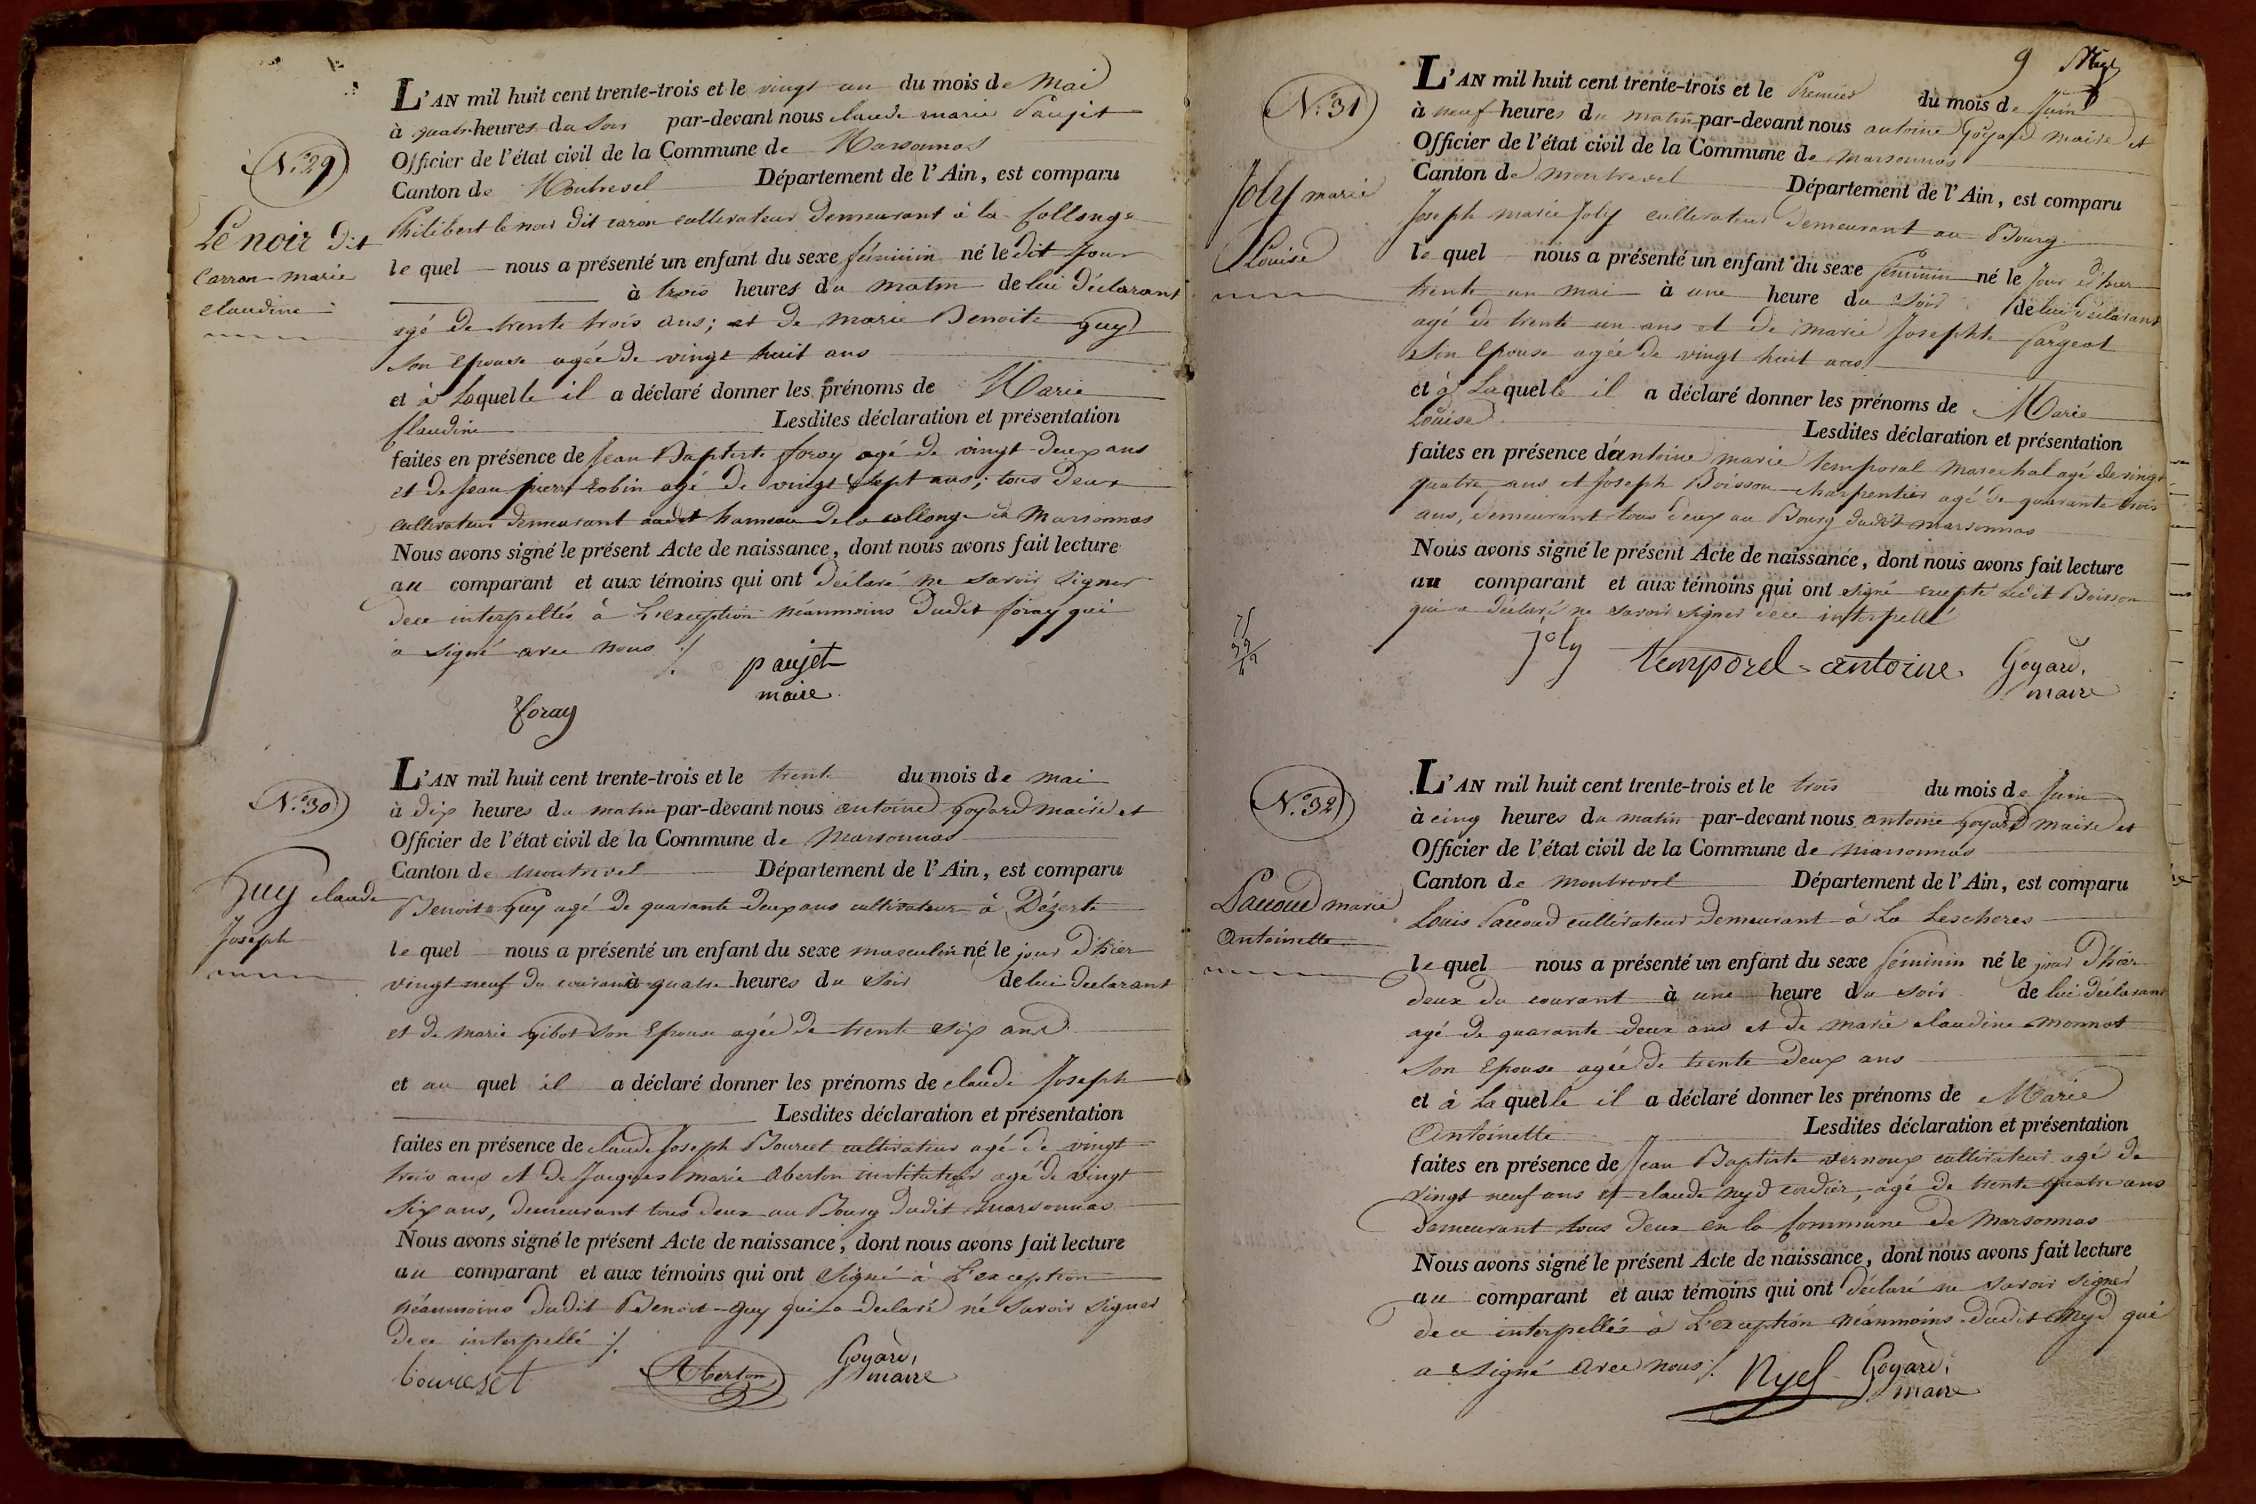 N.° 29
Le noir dit
Carron marie
claudine
L'AN mil huit cent trente-trois et le vingt un du mois de Mai
à quatre heures du soir par-devant nous claude marie Paujet
Officier de l'état civil de la Commune de Marsonnas
Canton de Montrevel Département de l'Ain, est comparu
Philibert le noir dit caron cultivateur demeurant à la Collonge
le quel nous a présenté un enfant du sexe féminin né le dit jour
à trois heures du matin de lui déclarant
agé de trente trois ans; et de marie Benoite guy
son Epouse agée de vingt huit ans
et à laquelle il a déclaré donner les prénoms de Marie
Claudine Lesdites déclaration et présentation
faites en présence de Jean Baptiste foray agé de vingt deux ans
et de Jean pierre robin agé de vingt sept ans; tous deux
cultivateur demeurant audit hameau de la collonge à Marsonnas
Nous avons signé le présent Acte de naissance, dont nous avons fait lecture
au comparant et aux témoins qui ont déclaré ne savoir signer
de ce interpellés à L'exception néanmoins dudit foray qui
a signé avec nous ./.
paujet
maire
foray
N.° 30
Guy claude
Joseph
L'AN mil huit cent trente-trois et le trente du mois de mai
à dix heures du matin par-devant nous antoine goyard maire et
Officier de l'état civil de la Commune de Marsonnas
Canton de montrevel Département de l'Ain, est comparu
Benoit Guy agé de quarante deux ans cultivateur à Dézerte
le quel nous a présenté un enfant du sexe masculin né le jour d'hier
vingt neuf du courant à quatre heures du soir de lui declarant
et de marie gibot son Epouse agée de trente six ans
et au quel il a déclaré donner les prénoms de claude Joseph
Lesdites déclaration et présentation
faites en présence de claude Joseph Bourcet cultivateur agé de vingt
trois ans et de Jacques marie aberton instituteur agé de vingt
six ans, demeurant tous deux au Bourg dudit marsonnas
Nous avons signé le présent Acte de naissance, dont nous avons fait lecture
au comparant et aux témoins qui ont signé à L'exception
néanmoins dudit Benoit Guy qui a declaré né savoir signer
de ce interpellé ./.
Aberton
Goyard,
maire
9
N.° 31
Joly marie
Louise
L'AN mil huit cent trente-trois et le Premier du mois de Juin
à neuf heures du matin par-devant nous antoine Goyard maire et
Officier de l'état civil de la Commune de marsonnas
Canton de montrevel Département de l'Ain, est comparu
Joseph marie Joly cultivateur demeurant au Bourg
le quel nous a présenté un enfant du sexe féminin né le Jour d'hier
trente un mai à une heure du soir de lui déclarant
agé de trente un ans et de marie Josephte Pargeat
son Epouse agée de vingt huit ans
et à Laquelle il a déclaré donner les prénoms de Marie
Louise Lesdites déclaration et présentation
faites en présence d'antoine marie temporal marechal agé de vingt
quatre ans et Joseph Boisson charpentier agé de quarante trois
ans, demeurant tous deux au Bourg dudit marsonnas
Nous avons signé le présent Acte de naissance, dont nous avons fait lecture
au comparant et aux témoins qui ont signé excepté ledit Boisson
qui a déclaré ne savoir signer de ce interpellé
joly temporel antoine Goyard,
maire
N.° 32
Paccoud marie
Antoinette
L'AN mil huit cent trente-trois et le trois du mois de Juin
à cinq heures du matin par-devant nous antoine goyard maire et
Officier de l'état civil de la Commune de marsonnas
Canton de montrevel Département de l'Ain, est comparu
Louis Paccoud cultivateur demeurant à La Lescheres
le quel nous a présenté un enfant du sexe féminin né le jour d'hier
deux du courant à une heure du soir de lui déclarant
agé de quarante deux ans et de marie claudine monnot
son Epouse agée de trente deux ans
et à Laquelle il a déclaré donner les prénoms de Marie
Antoinette Lesdites déclaration et présentation
faites en présence de Jean Baptiste vernoux cultivateur agé de
vingt neuf ans et claude nyd cordier, agé de trente quatre ans
demeurant tous deux en la Commune de Marsonnas
Nous avons signé le présent Acte de naissance, dont nous avons fait lecture
au comparant et aux témoins qui ont déclaré ne savoir signer
de ce interpellés à L'exception néanmoins dudit Nyd qui
a signé avec nous ./. Nyd Goyard,
maire